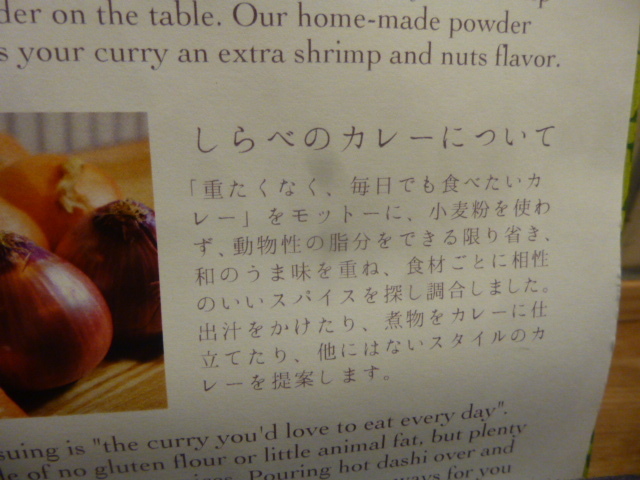 der on the table. Our home-made powder
s your curry an extra shrimp and nuts flavor.
しらべのカレーについて
「重たくなく、毎日でも食べたいカ
レー」をモットーに、小麦粉を使わ
ず、動物性の脂分をできる限り省き、
和のうま味を重ね、食材ごとに相性
のいいスパイスを探し調合しました。
出汁をかけたり、煮物をカレーに仕
立てたり、他にはないスタイルのカ
レーを提案します。
suing is "the curry you'd love to eat every day".
de of no gluten flour or little animal fat, but plenty
Pouring hot dashi over and
ways for you